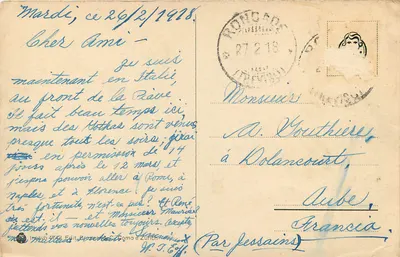 Mardi, ce 26/2/1918.
Cher Ami –
Je suis
maintenant en Italie,
au front de la Piave.
Il fait beau temps ici,
mais des Gothas sont venus
presque tout les soirs. J'irai
en permission de 14
jours après le 12 mars et
j'espère pouvoir aller à Rome, à
Naples et à Florence. Je suis
très fortunité, n'est-ce pas? Et René
où est-il – et Monsieur
J'attends vos nouvelles toujours. Acceptez
mes
W.
RONCADE
27.2.18
(TREVISO)
Monsieur
A. Gouthière
à Dolancourt,
Aube,
Francia
(Par Jessains)